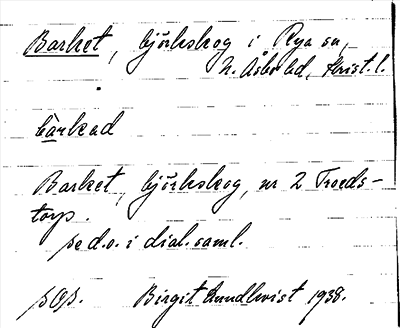 Barket, björkskog i Rya sn,
N. Åsbo hd, Krist. l.
bàrkeəd
Barket, björkskog, nr 2 Troeds-
torp.
se d.o. i dial. saml.
Birgit Lundkvist 1938.